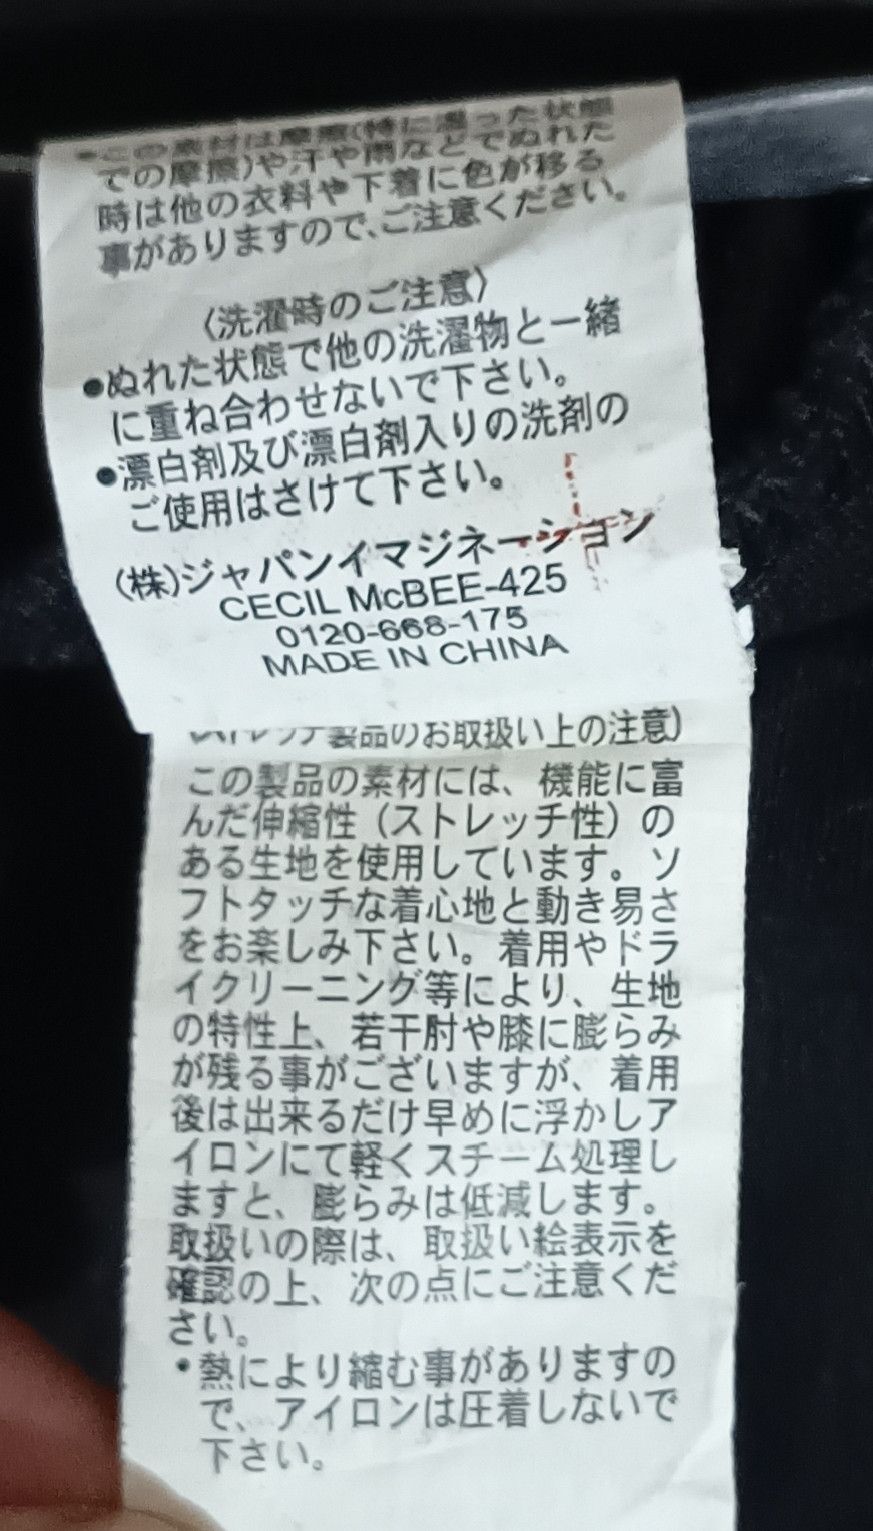 この素材は摩擦(特に湿った状態
での摩擦)や汗や雨などでぬれた
時は他の衣料や下着に色が移る
事がありますので、ご注意ください。
〈洗濯時のご注意〉
●ぬれた状態で他の洗濯物と一緒
に重ね合わせないで下さい。
●漂白剤及び漂白剤入りの洗剤の
ご使用はさけて下さい。
(株)ジャパンイマジネーション
CECIL McBEE-425
0120-668-175
MADE IN CHINA
ストレッチ製品のお取扱い上の注意)
この製品の素材には、機能に富
んだ伸縮性（ストレッチ性）の
ある生地を使用しています。ソ
フトタッチな着心地と動き易さ
をお楽しみ下さい。着用やドラ
イクリーニング等により、生地
の特性上、若干肘や膝に膨らみ
が残る事がございますが、着用
後は出来るだけ早めに浮かしア
イロンにて軽くスチーム処理し
ますと、膨らみは低減します。
取扱いの際は、取扱い絵表示を
確認の上、次の点にご注意くだ
さい。
・熱により縮む事がありますの
で、アイロンは圧着しないで
下さい。